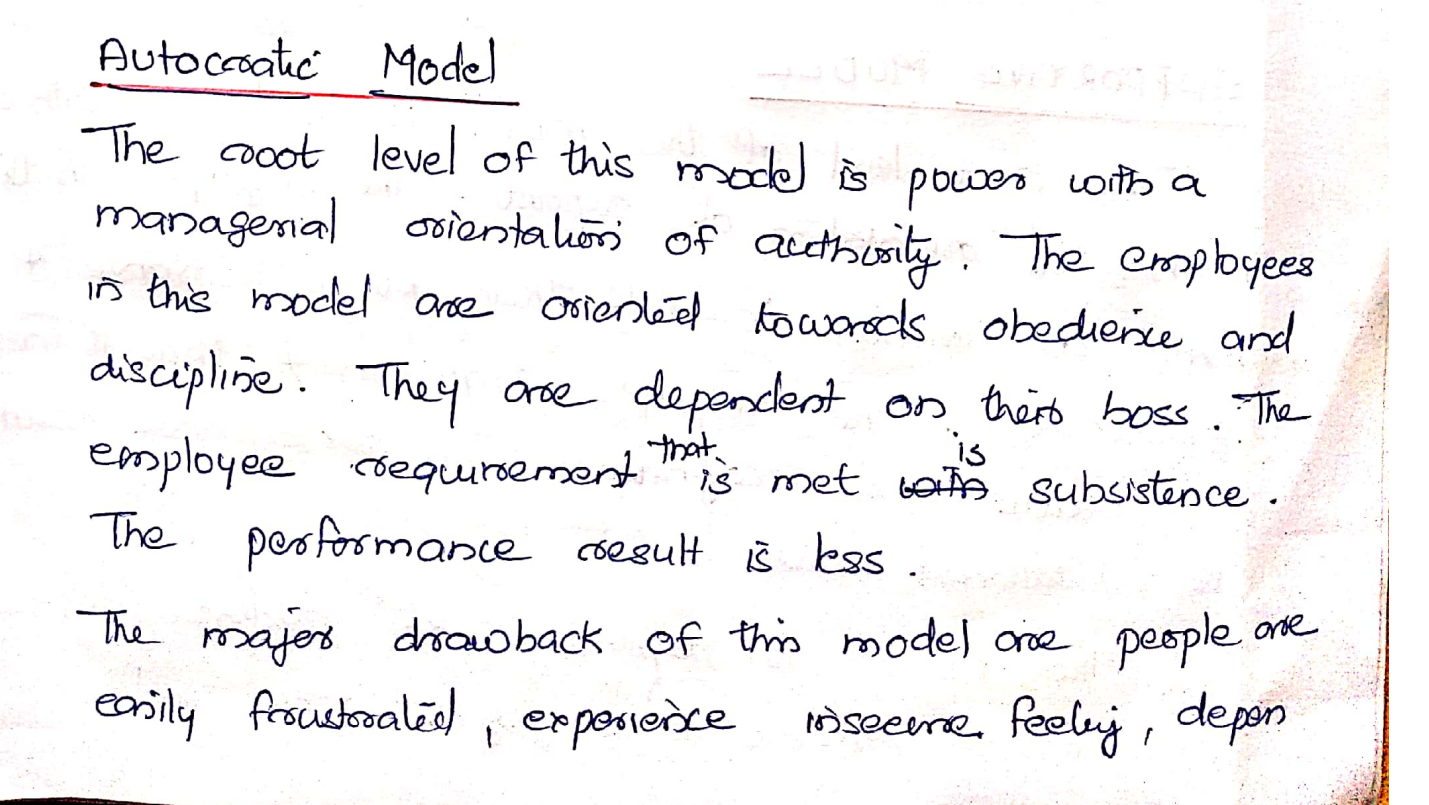 Autocratic Model
The root level of this model is power with a
managerial orientation of authority. The employees
in this model are oriented towards obedience and
discipline. They are dependent on their boss. The
employee requirement that is met is subsistence.
The performance result is less.
The major drawback of this model are people are
easily frustrated, experience insecure feeling, depen